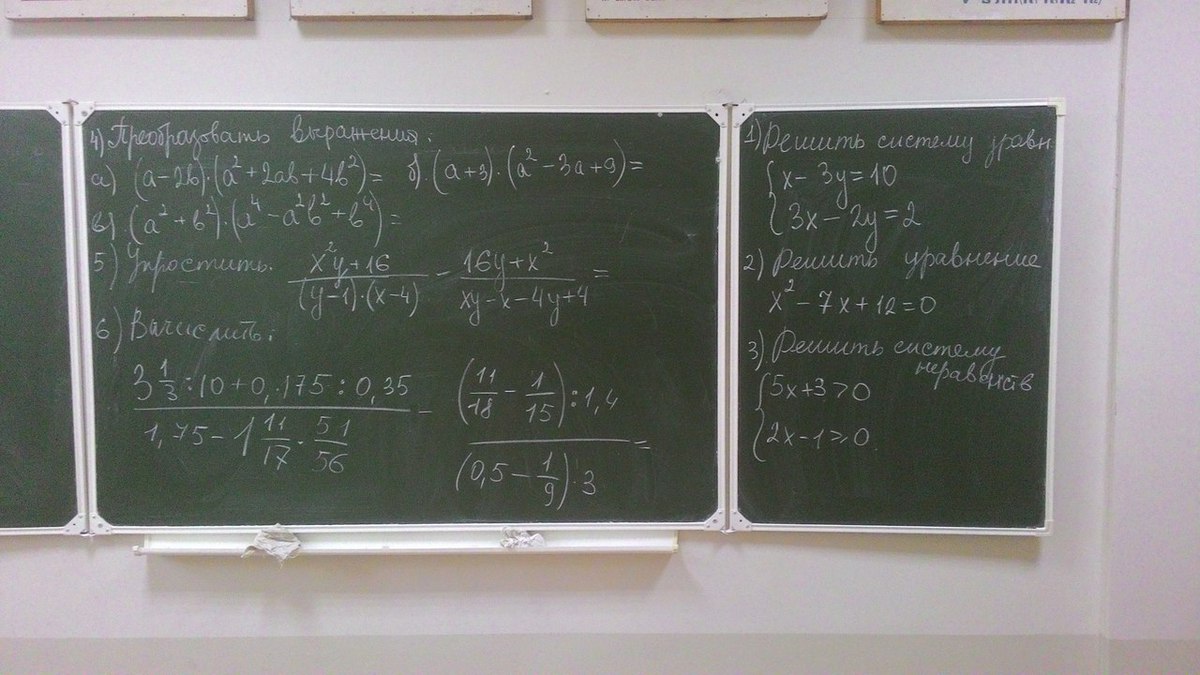 4) Преобразовать выражения:
а) (a-2b)·(a²+2ab+4b²)= б) (a+3)·(a²-3a+9)=
в) (a²+b²)·(a⁴-a²b²+b⁴)=
5) Упростить. (x²y+16)/((y-1)·(x-4)) - (16y+x²)/(xy-x-4y+4) =
6) Вычислить:
(3 1/3 : 10 + 0,175 : 0,35)/(1,75 - 1 11/17 · 51/56) - ((11/18 - 1/15) : 1,4)/((0,5 - 1/9) · 3) =
1) Решить систему уравн.
{ x - 3y = 10
{ 3x - 2y = 2
2) Решить уравнение
x² - 7x + 12 = 0
3) Решить систему
неравенств
{ 5x + 3 > 0
{ 2x - 1 ≥ 0